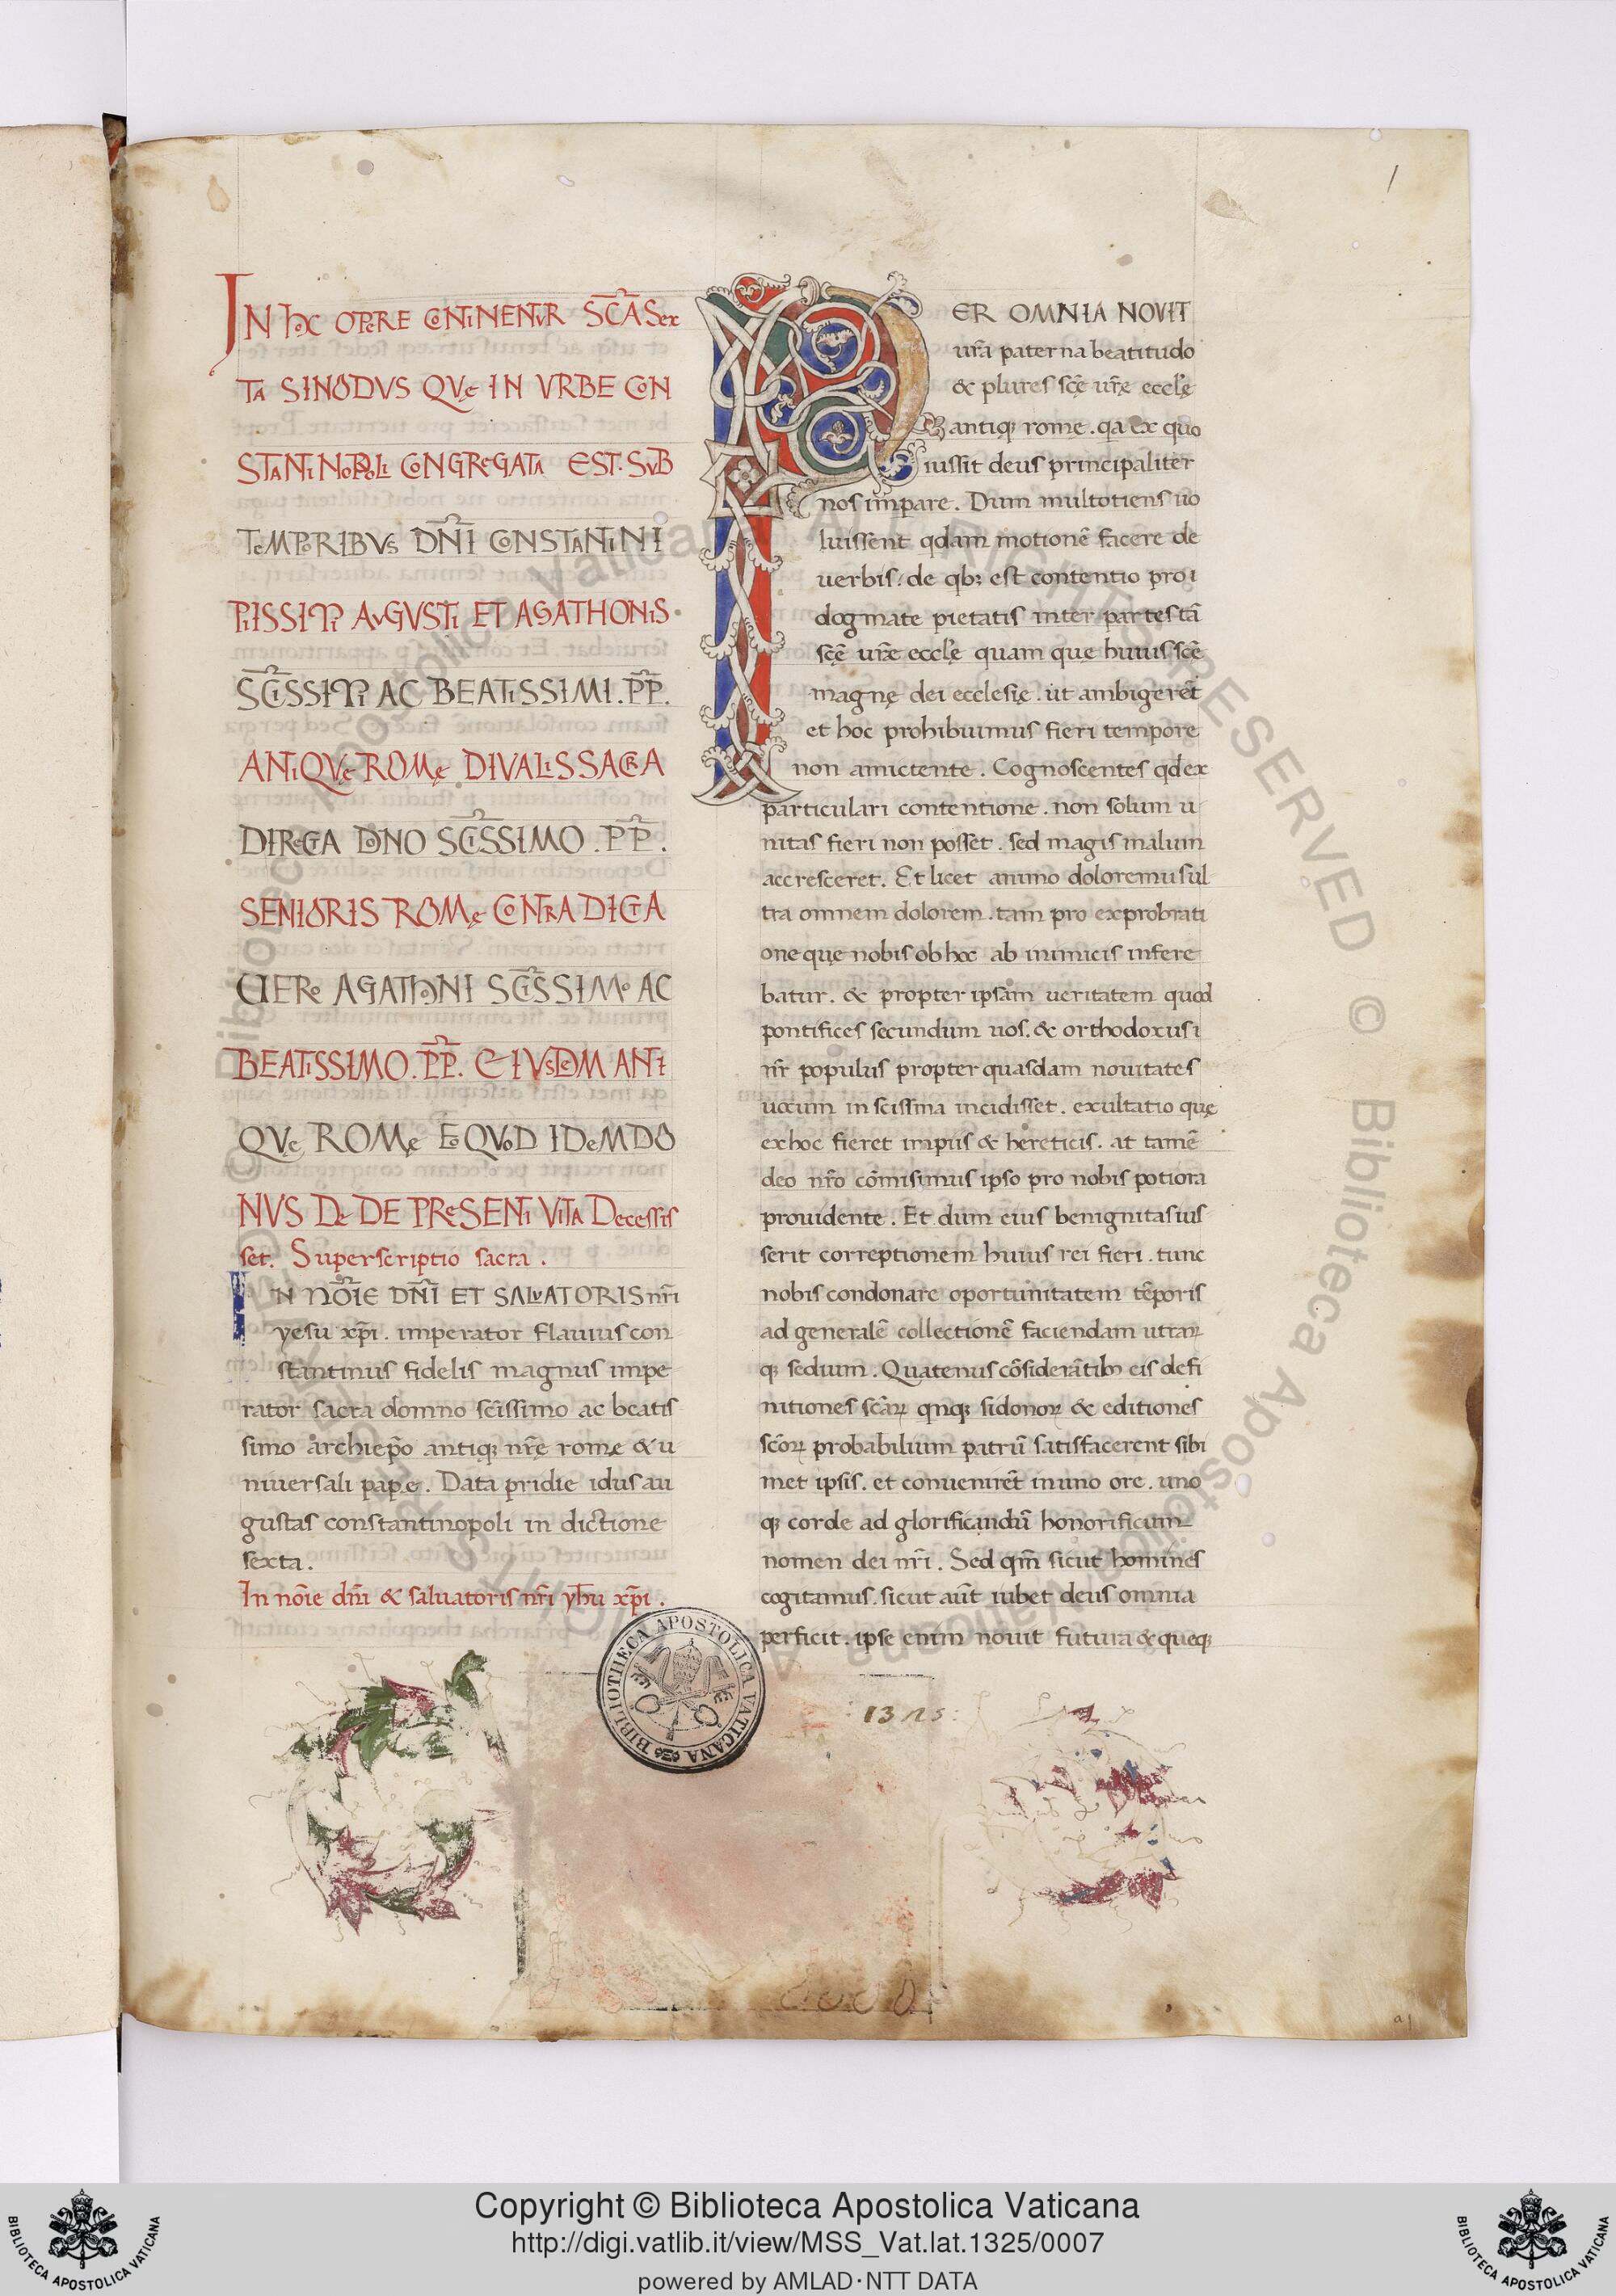 1
IN hoc OPERE CONTINENTUR SC̄A Sex
TA SINODVS QVę IN VRBE CON
STANTINOPOLI CONGREGATA EST. SVB
TEMPORIBVS DN̄I CONSTANTINI
PIISSIMI AVGVSTI ET AGATHONIS.
SC̄ISSIMI AC BEATISSIMI. P̄P̄.
ANTIQVę ROMę DIVALIS SACRA
DIRECTA DONO SC̄ISSIMO. P̄P̄.
SENIORIS ROMę CONTRADICTA
VERO AGATHONI SC̄ISSIMO AC
BEATISSIMO. P̄P̄. EIVSDEM ANTI
QVę ROMę EO QVOD IDEM DO
NVS DE DE PRESENTI VITA Decessis
set. Superscriptio sacra.
IN NOĪE DN̄I ET SALVATORIS nr̄i
yesu xp̄i. imperator flauius con
stantinus fidelis magnus impe
rator sacra domno sc̄issimo ac beatis
simo archiep̄o antiqꝫ nr̄ę rome & u
niuersali pape. Data pridie idus au
gustas constantinopoli in dictione
sexta.
In noīe dn̄i & saluatoris nr̄i yh̄u xp̄i.
PER OMNIA NOVIT
ur̄a paterna beatitudo
& plures sc̄ę ur̄ę eccl̄ę
antiqꝫ romę. qa ex quo
iussit deus principaliter
nos imꝑare. Dum multotiens uo
luissent qdam motionē facere de
uerbis. de qbꝫ est contentio pro
dogmate pietatis inter partes tā
sc̄ę ur̄ę eccl̄ę quam quę huius sc̄ę
magnę dei ecclesię. ut ambigerēt
et hoc prohibuimus fieri tempore
non amictente. Cognoscentes qd ex
particulari contentione. non solum u
nitas fieri non posset. sed magis malum
accresceret. Et licet animo doloremus ul
tra omnem dolorem. tam pro exprobrati
one quę nobis ob hoc ab inimicis infere
batur. & propter ipsam ueritatem quod
pontifices secundum uos. & orthodoxus
nr̄ populus propter quasdam nouitates
uocum in scissina incidisset. exultatio quę
ex hoc fieret impiis & hereticis. at tamē
deo nr̄o cōmisimus ipso pro nobis potiora
prouidente. Et dum eius benignitas ius
serit correptionem huius rei fieri. tunc
nobis condonare oportunitatem tēporis
ad generalē collectionē faciendam utraꝝ
qꝫ sedium. Quatenus cōsiderātibꝫ eis defi
nitiones sc̄aꝝ qnqꝫ sidonoꝝ & editiones
sc̄oꝝ probabilium patrū satisfacerent sibi
met ipsis. et conuenirēt in uno ore. uno
qꝫ corde ad glorificandū honorificum
nomen dei nr̄i. Sed qm̄ sicut homines
cogitamus. sicut aūt iubet deus omnia
perficit. ipse enim nouit futura & queqꝫ
BIBLIOTHECA APOSTOLICA VATICANA
a1
© Biblioteca Apostolica Vaticana ALL RIGHTS RESERVED © Biblioteca Apostolica Vaticana ALL RIGHTS RESERVED
Copyright © Biblioteca Apostolica Vaticana
http://digi.vatlib.it/view/MSS_Vat.lat.1325/0007
powered by AMLAD·NTT DATA
BIBLIOTECA APOSTOLICA VATICANA
BIBLIOTECA APOSTOLICA VATICANA